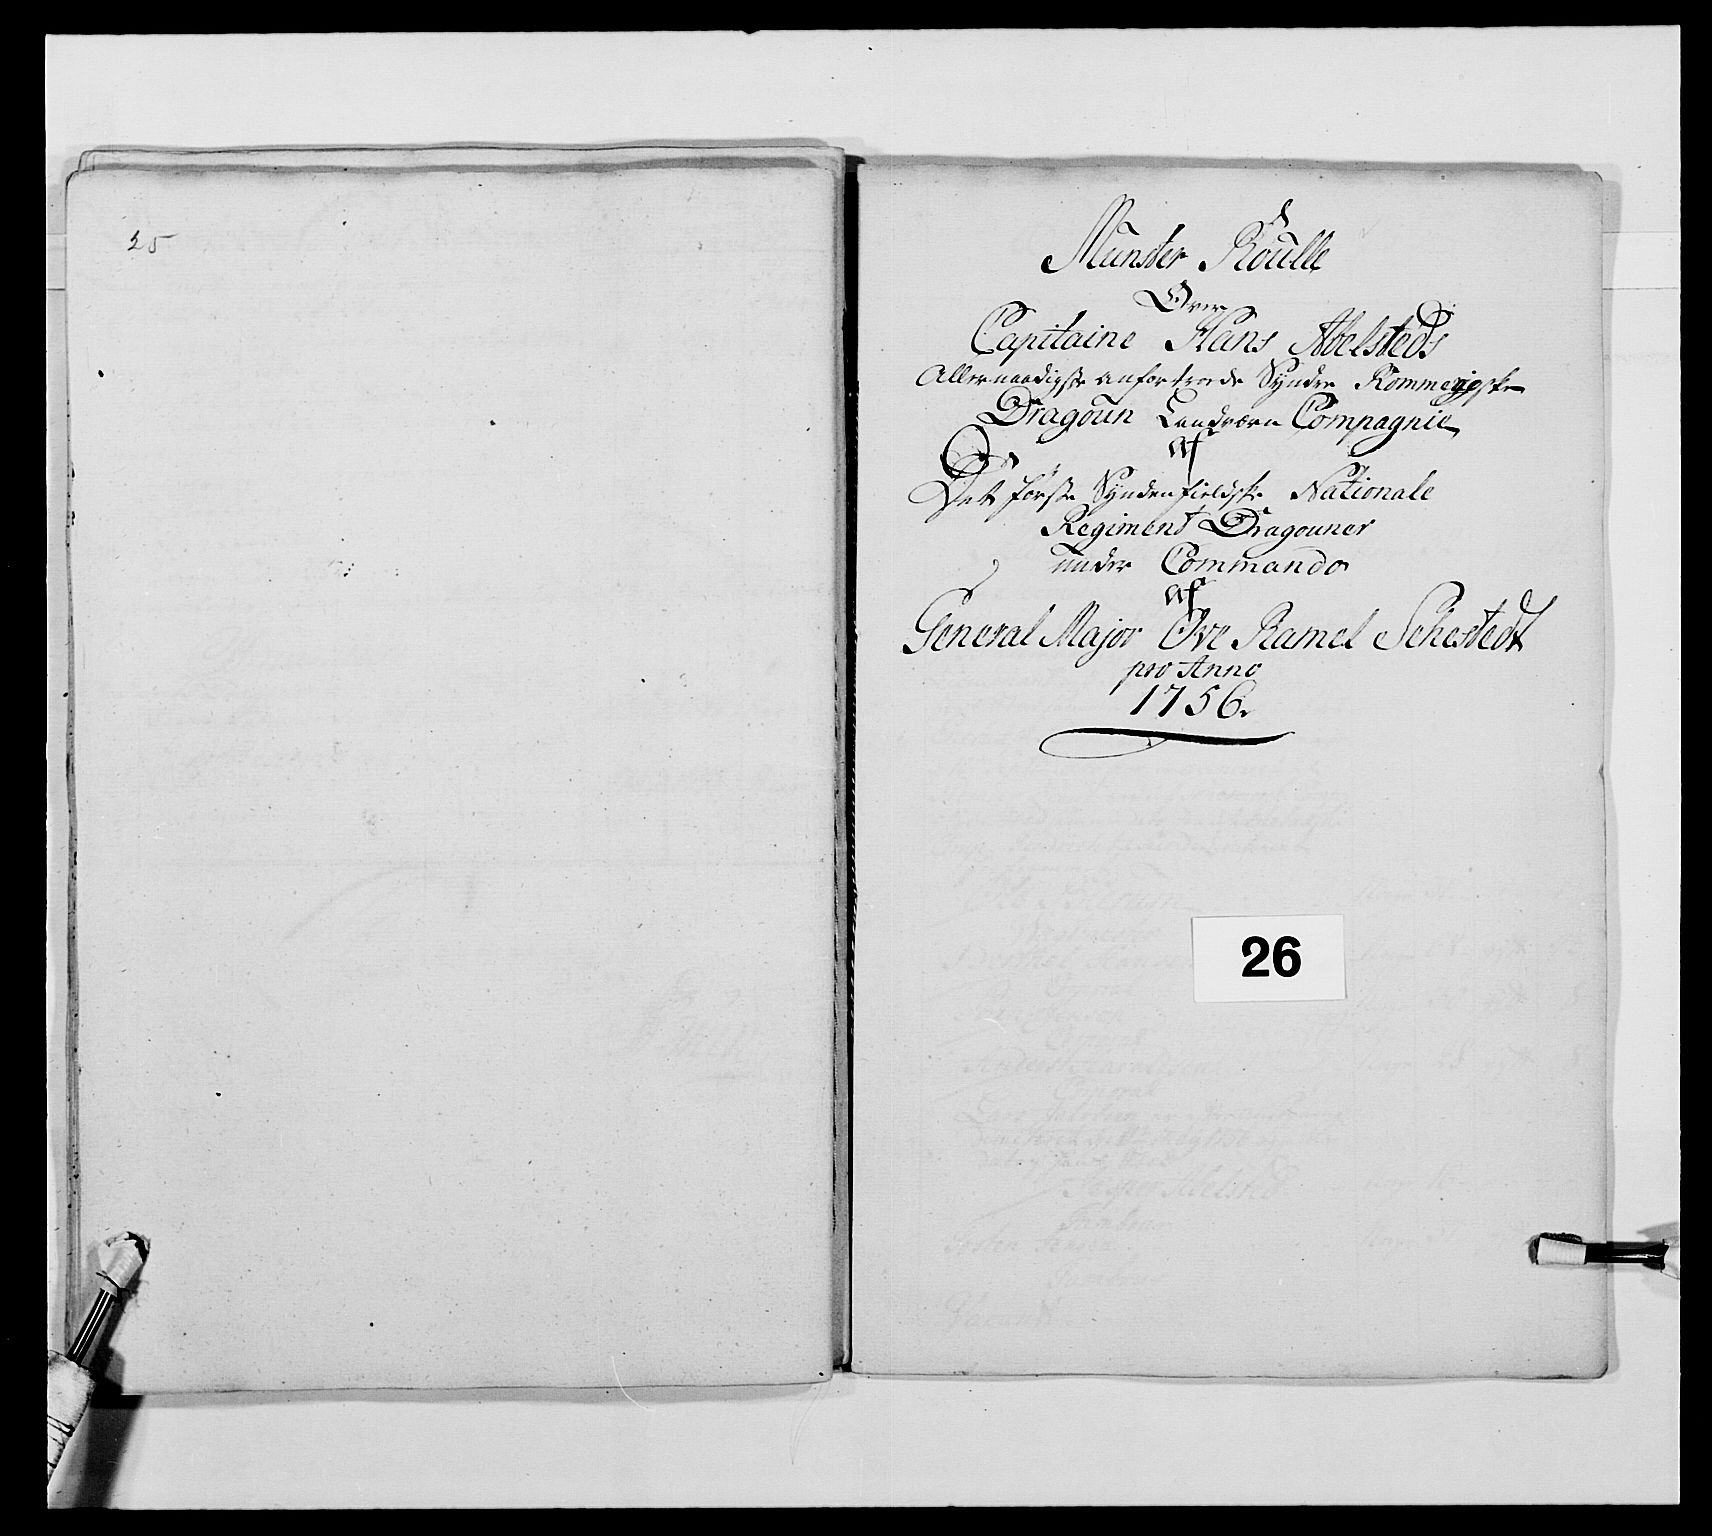 25
Munster Roulle
Over
Capitaine Hans Abelsteds
Allernaadigste anfortroede Syndre Rommerigske
Dragoun Landværn Compagnie
Af
Det første Syndenfieldske Nationale
Regiment Dragouner
under Commando
Af
General Major Ove Ramel Sehestedt
pro Anno
1756.
26